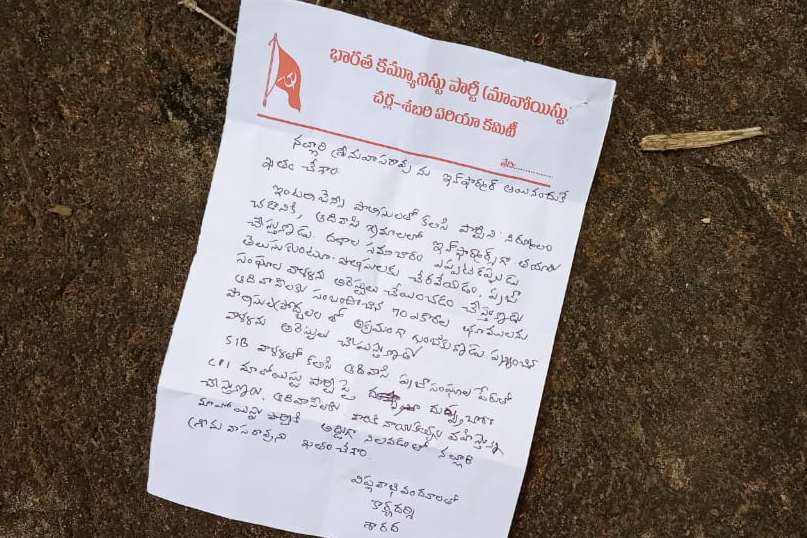 భారత కమ్యూనిస్టు పార్టీ (మావోయిస్టు)
చర్ల-శబరి ఏరియా కమిటీ
తేది:............
నల్లారి శ్రీనివాసరావు ను ఇన్‌ఫార్మర్ అయినందుకే
ఖతం చేశాం
ఇంటలిజెన్సు పోలీసులతో కలిసి పార్టీని నిర్మూలం
చేడానికి, ఆదివాసి గ్రామాలలో ఇన్‌ఫార్మర్స్‌గా తయారు
చేస్తున్నాడు. దళాల సమాచారం ఎప్పటికప్పుడు
తెలుసుకుంటూ పోలీసులకు చేరవేయడం, ప్రజా
సంఘాల వాళ్ళను అరెస్టులు చేయించడం చేస్తున్నాడు
ఆదివాసీలకు సంబంధించిన 70 ఎకరాల భూములను
పోలీసుల అక్రమంగా గుంజుకున్నాడు ప్రశ్నించిన
వాళ్ళను అరెస్టులు చేయిస్తున్నాడు
SIB వాళ్ళతో కలిసి ఆదివాసి ప్రజాసంఘాల పేరుతో
CPI మావోయిస్టు పార్టీ పై దుష్ప్రచారం
చేస్తున్నాడు. ఆదివాసీలకు వారికి నాయకత్వం వహిస్తున్న
మావోయిస్టు పార్టీకి అడ్డుగా నిలవడంతో నల్లారి
శ్రీనివాసరావును ఖతం చేశాం.
విప్లవాభివందనాలతో
కార్యదర్శి
శారద